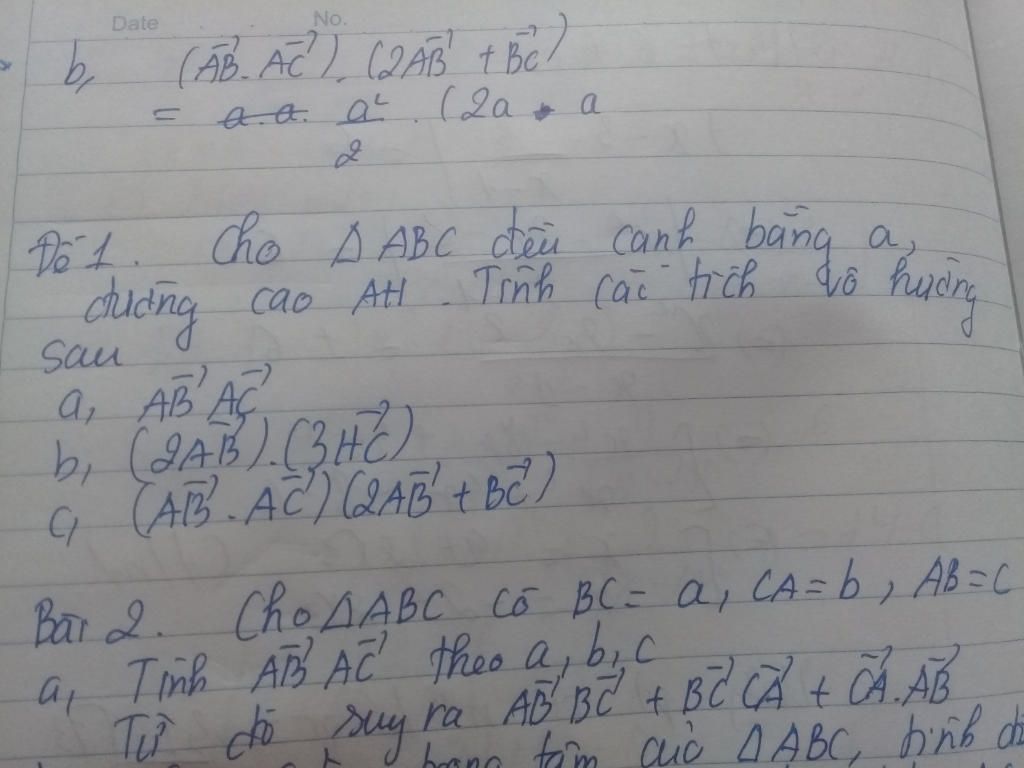 Date No.
b, (AB⃗. AC⃗). (2AB⃗ + BC⃗)
= a.a. a²/2 . (2a . a
Đố 1. Cho △ ABC đều cạnh bằng a,
đường cao AH. Tính các tích vô hướng
sau
a, AB⃗ AC⃗
b, (2AB⃗).(3HC⃗)
c, (AB⃗ - AC⃗)(2AB⃗ + BC⃗)
Bài 2. Cho △ABC có BC = a, CA = b, AB = c
a, Tính AB⃗ AC⃗ theo a, b, c
Từ đó suy ra AB⃗ BC⃗ + BC⃗ CA⃗ + CA⃗.AB⃗
tâm của △ABC,